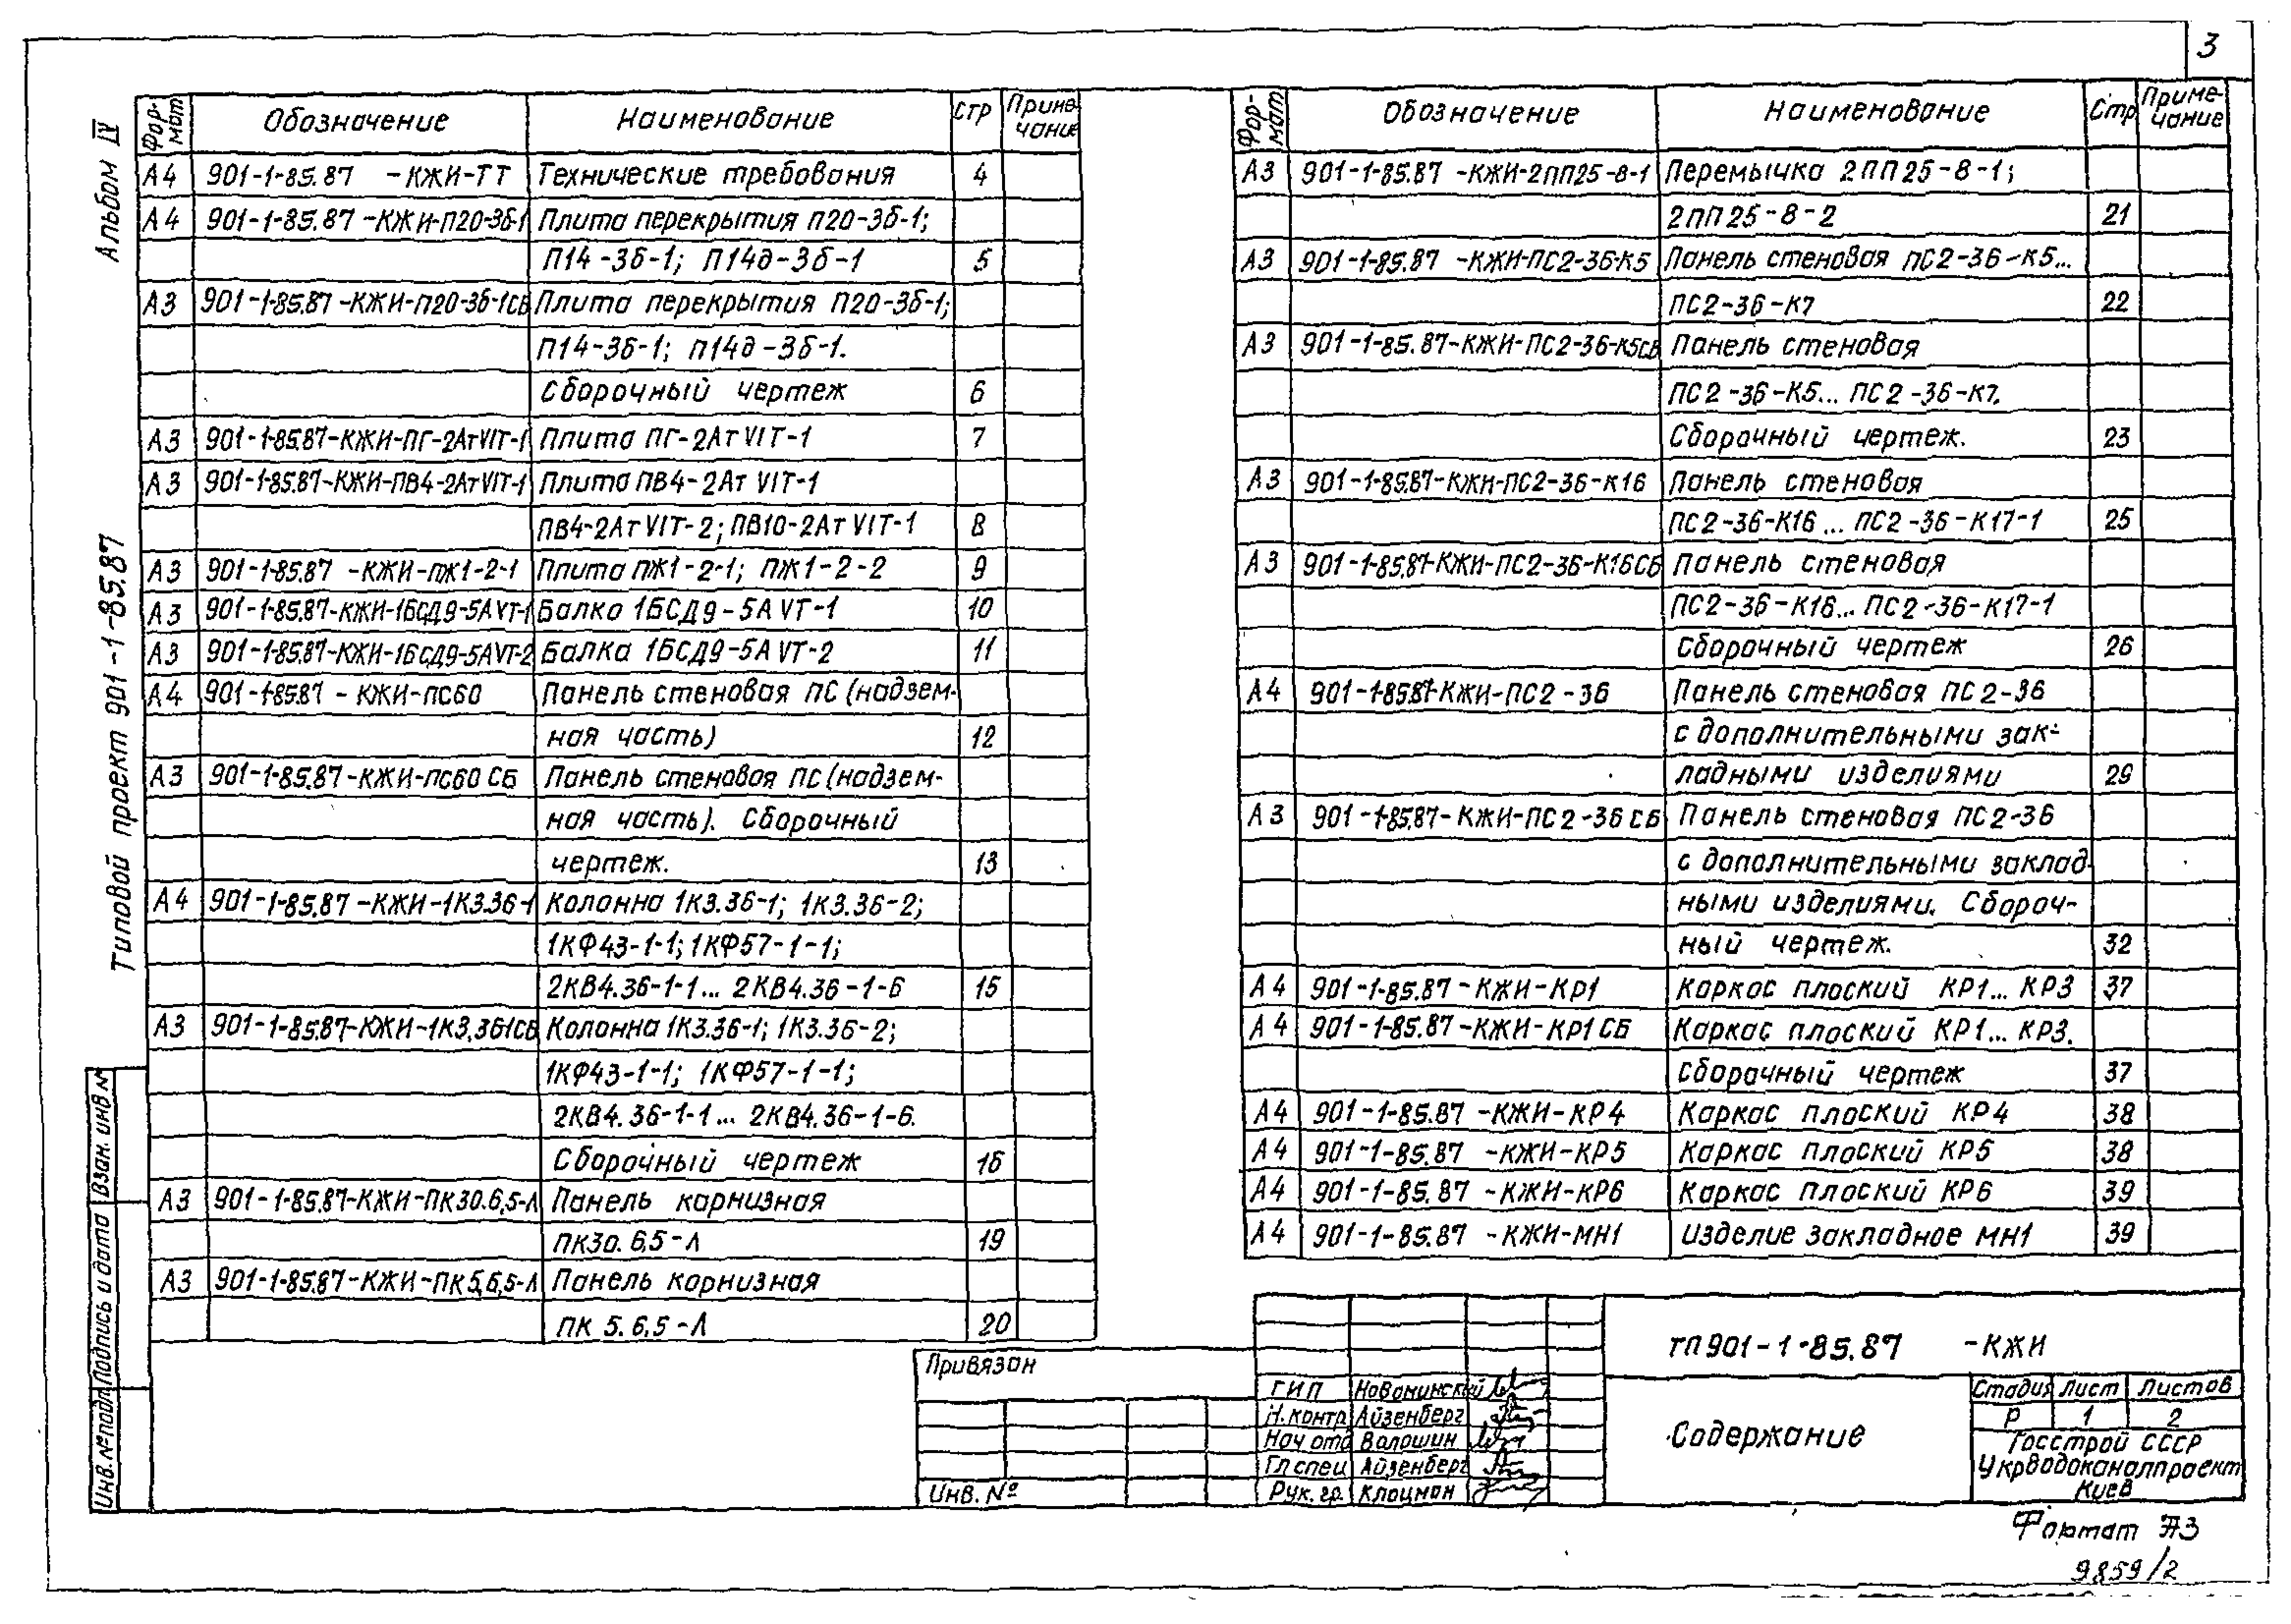 3
Альбом IV
Типовой проект 901-1-85.87
Фор-
мат
Обозначение
Наименование
Стр
Приме-
чание
А4 901-1-85.87 -КЖИ-ТТ Технические требования 4
А4 901-1-85.87 -КЖИ-П20-3б-1 Плита перекрытия П20-3б-1;
П14-3б-1; П14д-3б-1 5
А3 901-1-85.87 -КЖИ-П20-3б-1СБ Плита перекрытия П20-3б-1;
П14-3б-1; П14д-3б-1.
Сборочный чертеж 6
А3 901-1-85.87-КЖИ-ПГ-2АтVIТ-1 Плита ПГ-2АтVIТ-1 7
А3 901-1-85.87-КЖИ-ПВ4-2АтVIТ-1 Плита ПВ4-2Ат VIТ-1
ПВ4-2АтVIТ-2; ПВ10-2АтVIТ-1 8
А3 901-1-85.87 -КЖИ-ПЖ1-2-1 Плита ПЖ1-2-1; ПЖ1-2-2 9
А3 901-1-85.87-КЖИ-1БСД9-5АVТ-1 Балка 1БСД9-5АVТ-1 10
А3 901-1-85.87-КЖИ-1БСД9-5АVТ-2 Балка 1БСД9-5АVТ-2 11
А4 901-1-85.87 - КЖИ-ПС60 Панель стеновая ПС (надзем-
ная часть) 12
А3 901-1-85.87-КЖИ-ПС60 СБ Панель стеновая ПС (надзем-
ная часть). Сборочный
чертеж. 13
А4 901-1-85.87 -КЖИ-1К3.36-1 Колонна 1К3.36-1; 1К3.36-2;
1КФ43-1-1; 1КФ57-1-1;
2КВ4.36-1-1... 2КВ4.36-1-6 15
А3 901-1-85.87-КЖИ-1К3.361СБ Колонна 1К3.36-1; 1К3.36-2;
1КФ43-1-1; 1КФ57-1-1;
2КВ4.36-1-1... 2КВ4.36-1-6.
Сборочный чертеж 16
А3 901-1-85.87-КЖИ-ПК30.6,5-Л Панель карнизная
ПК30.6,5-Л 19
А3 901-1-85.87-КЖИ-ПК5.6,5-Л Панель карнизная
ПК 5.6.5-Л 20
Фор-
мат
Обозначение
Наименование
Стр
Приме-
чание
А3 901-1-85.87 -КЖИ-2ПП25-8-1 Перемычка 2ПП25-8-1;
2ПП25-8-2 21
А3 901-1-85.87 -КЖИ-ПС2-36-К5 Панель стеновая ПС2-36-К5...
ПС2-36-К7 22
А3 901-1-85.87-КЖИ-ПС2-36-К5СБ Панель стеновая
ПС2-36-К5... ПС2-36-К7.
Сборочный чертеж. 23
А3 901-1-85.87-КЖИ-ПС2-36-К16 Панель стеновая
ПС2-36-К16... ПС2-36-К17-1 25
А3 901-1-85.87-КЖИ-ПС2-36-К16СБ Панель стеновая
ПС2-36-К16... ПС2-36-К17-1
Сборочный чертеж 26
А4 901-1-85.87-КЖИ-ПС2-36 Панель стеновая ПС2-36
с дополнительными зак-
ладными изделиями 29
А3 901-1-85.87-КЖИ-ПС2-36 СБ Панель стеновая ПС2-36
с дополнительными заклад-
ными изделиями. Сбороч-
ный чертеж. 32
А4 901-1-85.87-КЖИ-КР1 Каркас плоский КР1... КР3 37
А4 901-1-85.87-КЖИ-КР1 СБ Каркас плоский КР1... КР3.
Сборочный чертеж 37
А4 901-1-85.87 -КЖИ-КР4 Каркас плоский КР4 38
А4 901-1-85.87 -КЖИ-КР5 Каркас плоский КР5 38
А4 901-1-85.87 -КЖИ-КР6 Каркас плоский КР6 39
А4 901-1-85.87 -КЖИ-МН1 Изделие закладное МН1 39
Взам. инв. №
Подпись и дата
Инв. № подл.
Привязан
Инв. №
ГИП Новоминский
Н.контр Айзенберг
Нач отд Валошин
Гл спец Айзенберг
Рук. гр. Клоцман
ТП901-1-85.87 -КЖИ
Содержание
Стадия Лист Листов
Р 1 2
Госстрой СССР
Укрводоканалпроект
Киев
Формат А3
9859/2